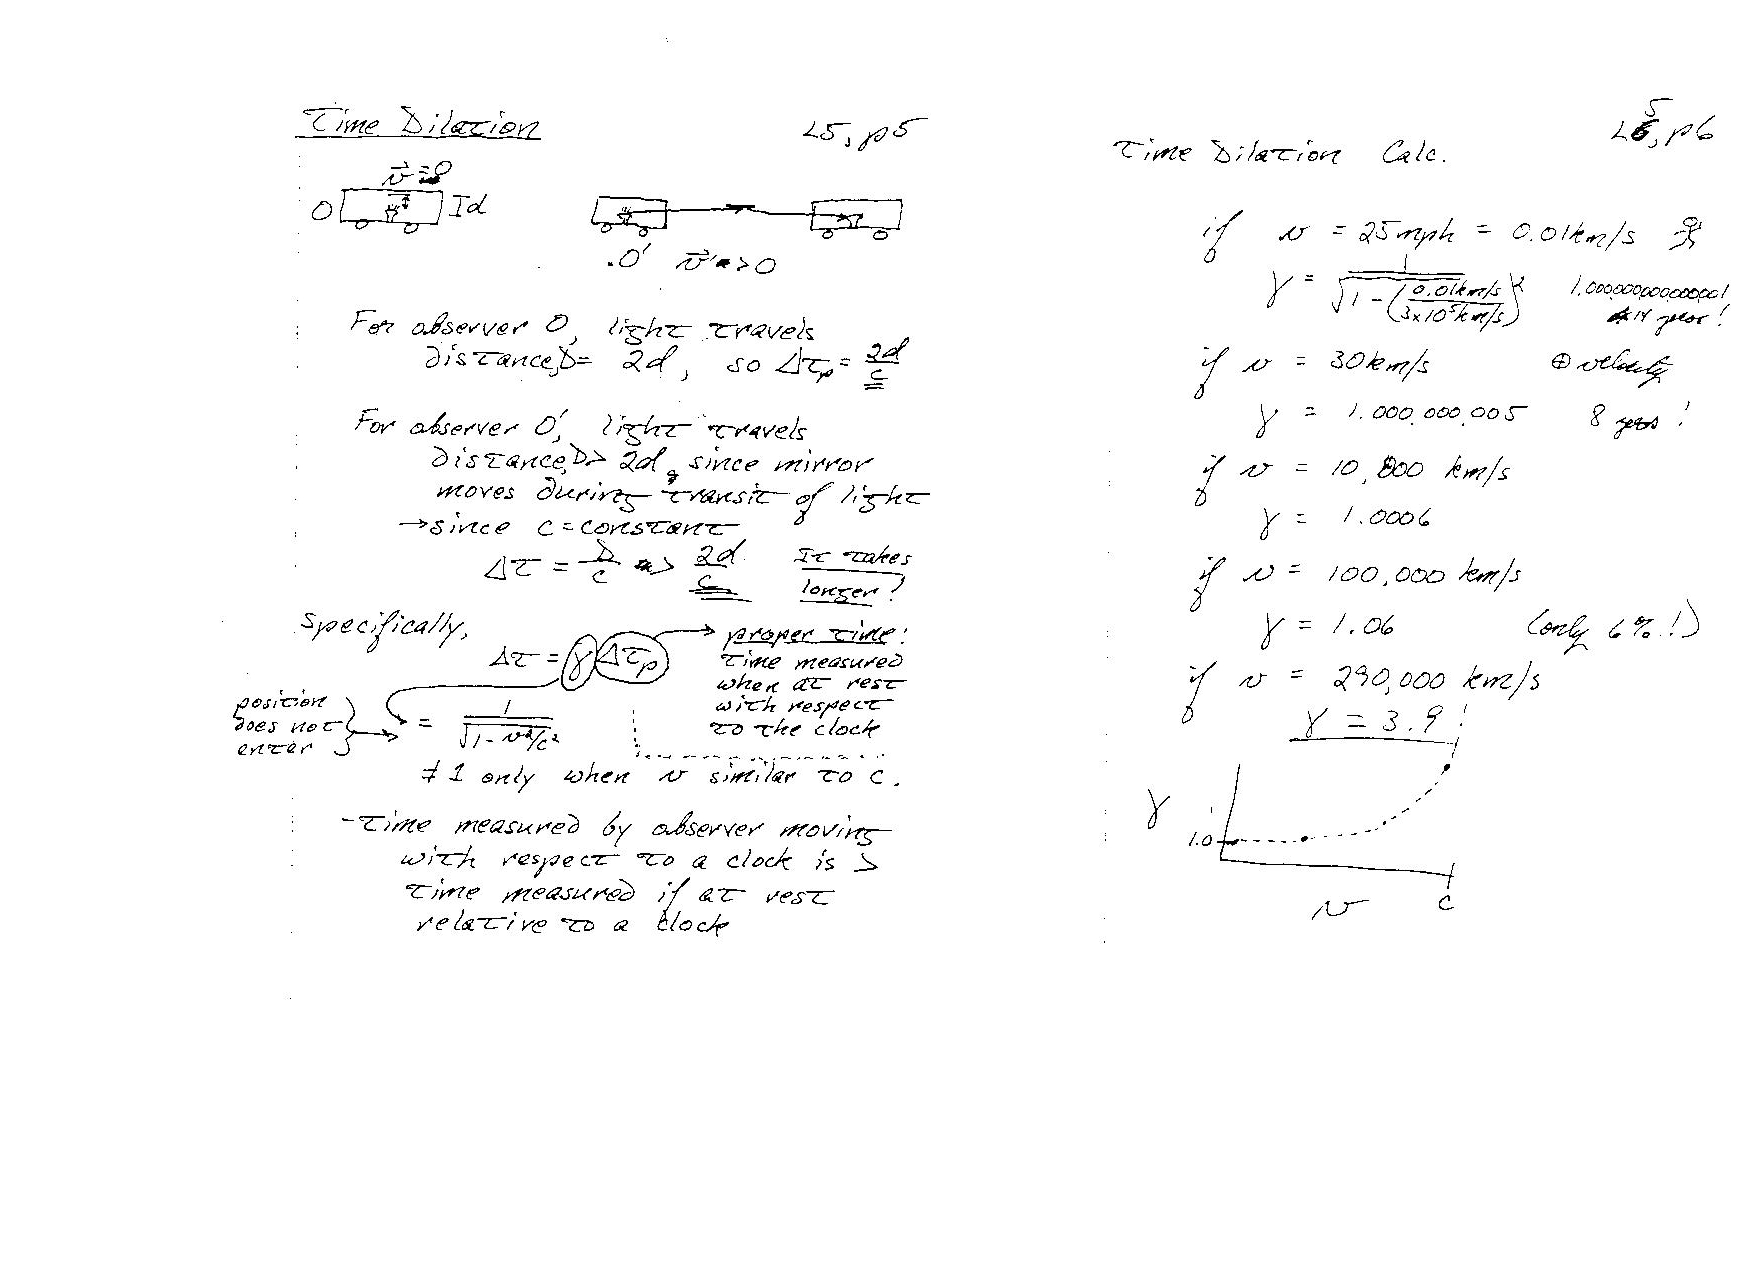 Time Dilation
L5, p5
v⃗ = 0
O
I d
.O' v⃗ > 0
For observer O, light travels
distance, D = 2d, so Δtp = 2d/c
For observer O', light travels
distance, D > 2d, since mirror
moves during transit of light
→ since c = constant
Δt = D/c > 2d/c It takes
longer!
Specifically,
Δt = γ Δtp
→ proper time:
time measured
when at rest
with respect
to the clock
position
does not
enter
= 1/√(1 - v²/c²)
≠ 1 only when v similar to c.
- Time measured by observer moving
with respect to a clock is >
time measured if at rest
relative to a clock
L5, p6
Time Dilation Calc.
if v = 25 mph = 0.01 km/s
γ = 1/√(1 - (0.01 km/s / 3x10⁵ km/s)²) 1.000000000000001
14 !
if v = 30 km/s ⊕ velocity
γ = 1.000,000,005 8 !
if v = 10,000 km/s
γ = 1.0006
if v = 100,000 km/s
γ = 1.06 (only 6% !)
if v = 290,000 km/s
γ = 3.9 !
γ
1.0
v
c